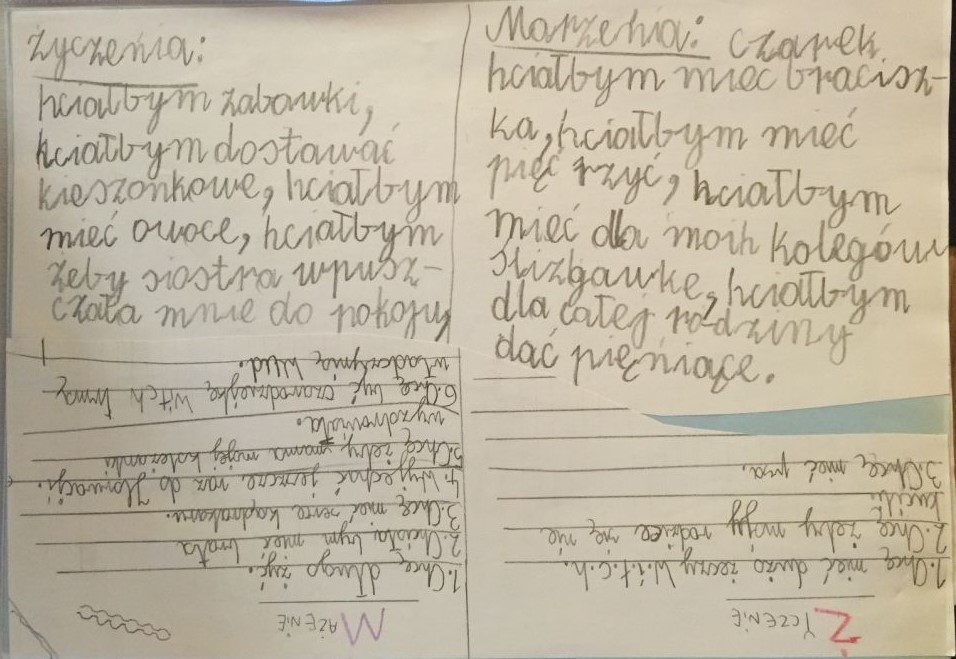 Życzenia:
hciałbym zabawki,
hciałbym dostawać
kieszonkowe, hciałbym
mieć owoce, hciałbym
żeby siostra wpusz-
czała mnie do pokoju
Marzenia: czarek
hciałbym mieć bracisz-
ka, hciałbym mieć
pięć rzyć, hciałbym
mieć dla moih kolegów
slizgawkę, hciałbym
dla całej rodziny
dać pięniące.
ŻYCZENIE
1. Chcę mieć dużo żeczy W.i.t.c.h.
2. Chcę żeby mojy rodzice się nie
kucili
3. Chcę mieć psa.
MAZENIE
1. Chcę długo żyć.
2. Chciała bym mieć brata
3. Chcę mieć serce Kądrakaru.
4. Wyjechać jeszcze raz do Słowacji.
5. Chcę żeby mama mojej koleżanki
wyzdrowiała.
6. Chcę być czarodziejką Witch Irmą-
władczynią wud.